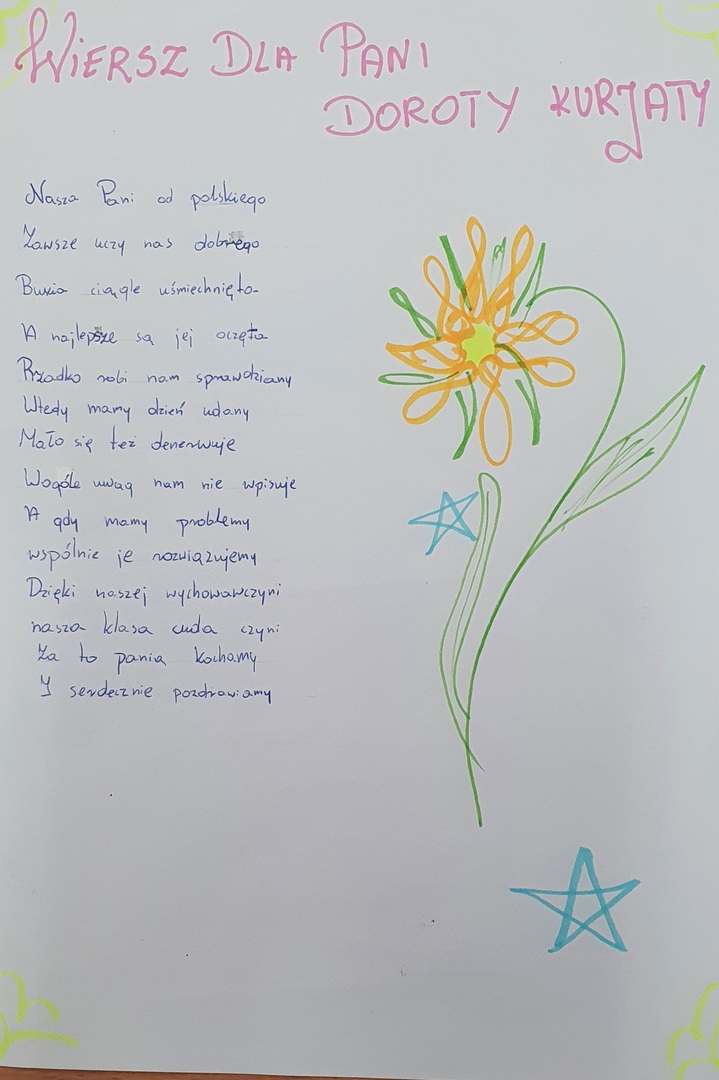 WIERSZ DLA PANI
DOROTY KURJATY
Nasza Pani od polskiego
Zawsze uczy nas dobrego
Buzia ciągle uśmiechnięta
A najlepsze są jej oczęta
Rzadko robi nam sprawdziany
Wtedy mamy dzień udany
Mało się też denerwuje
Wogóle uwag nam nie wpisuje
A gdy mamy problemy
wspólnie je rozwiązujemy
Dzięki naszej wychowawczyni
nasza klasa cuda czyni
Za to panią kochamy
I serdecznie pozdrawiamy